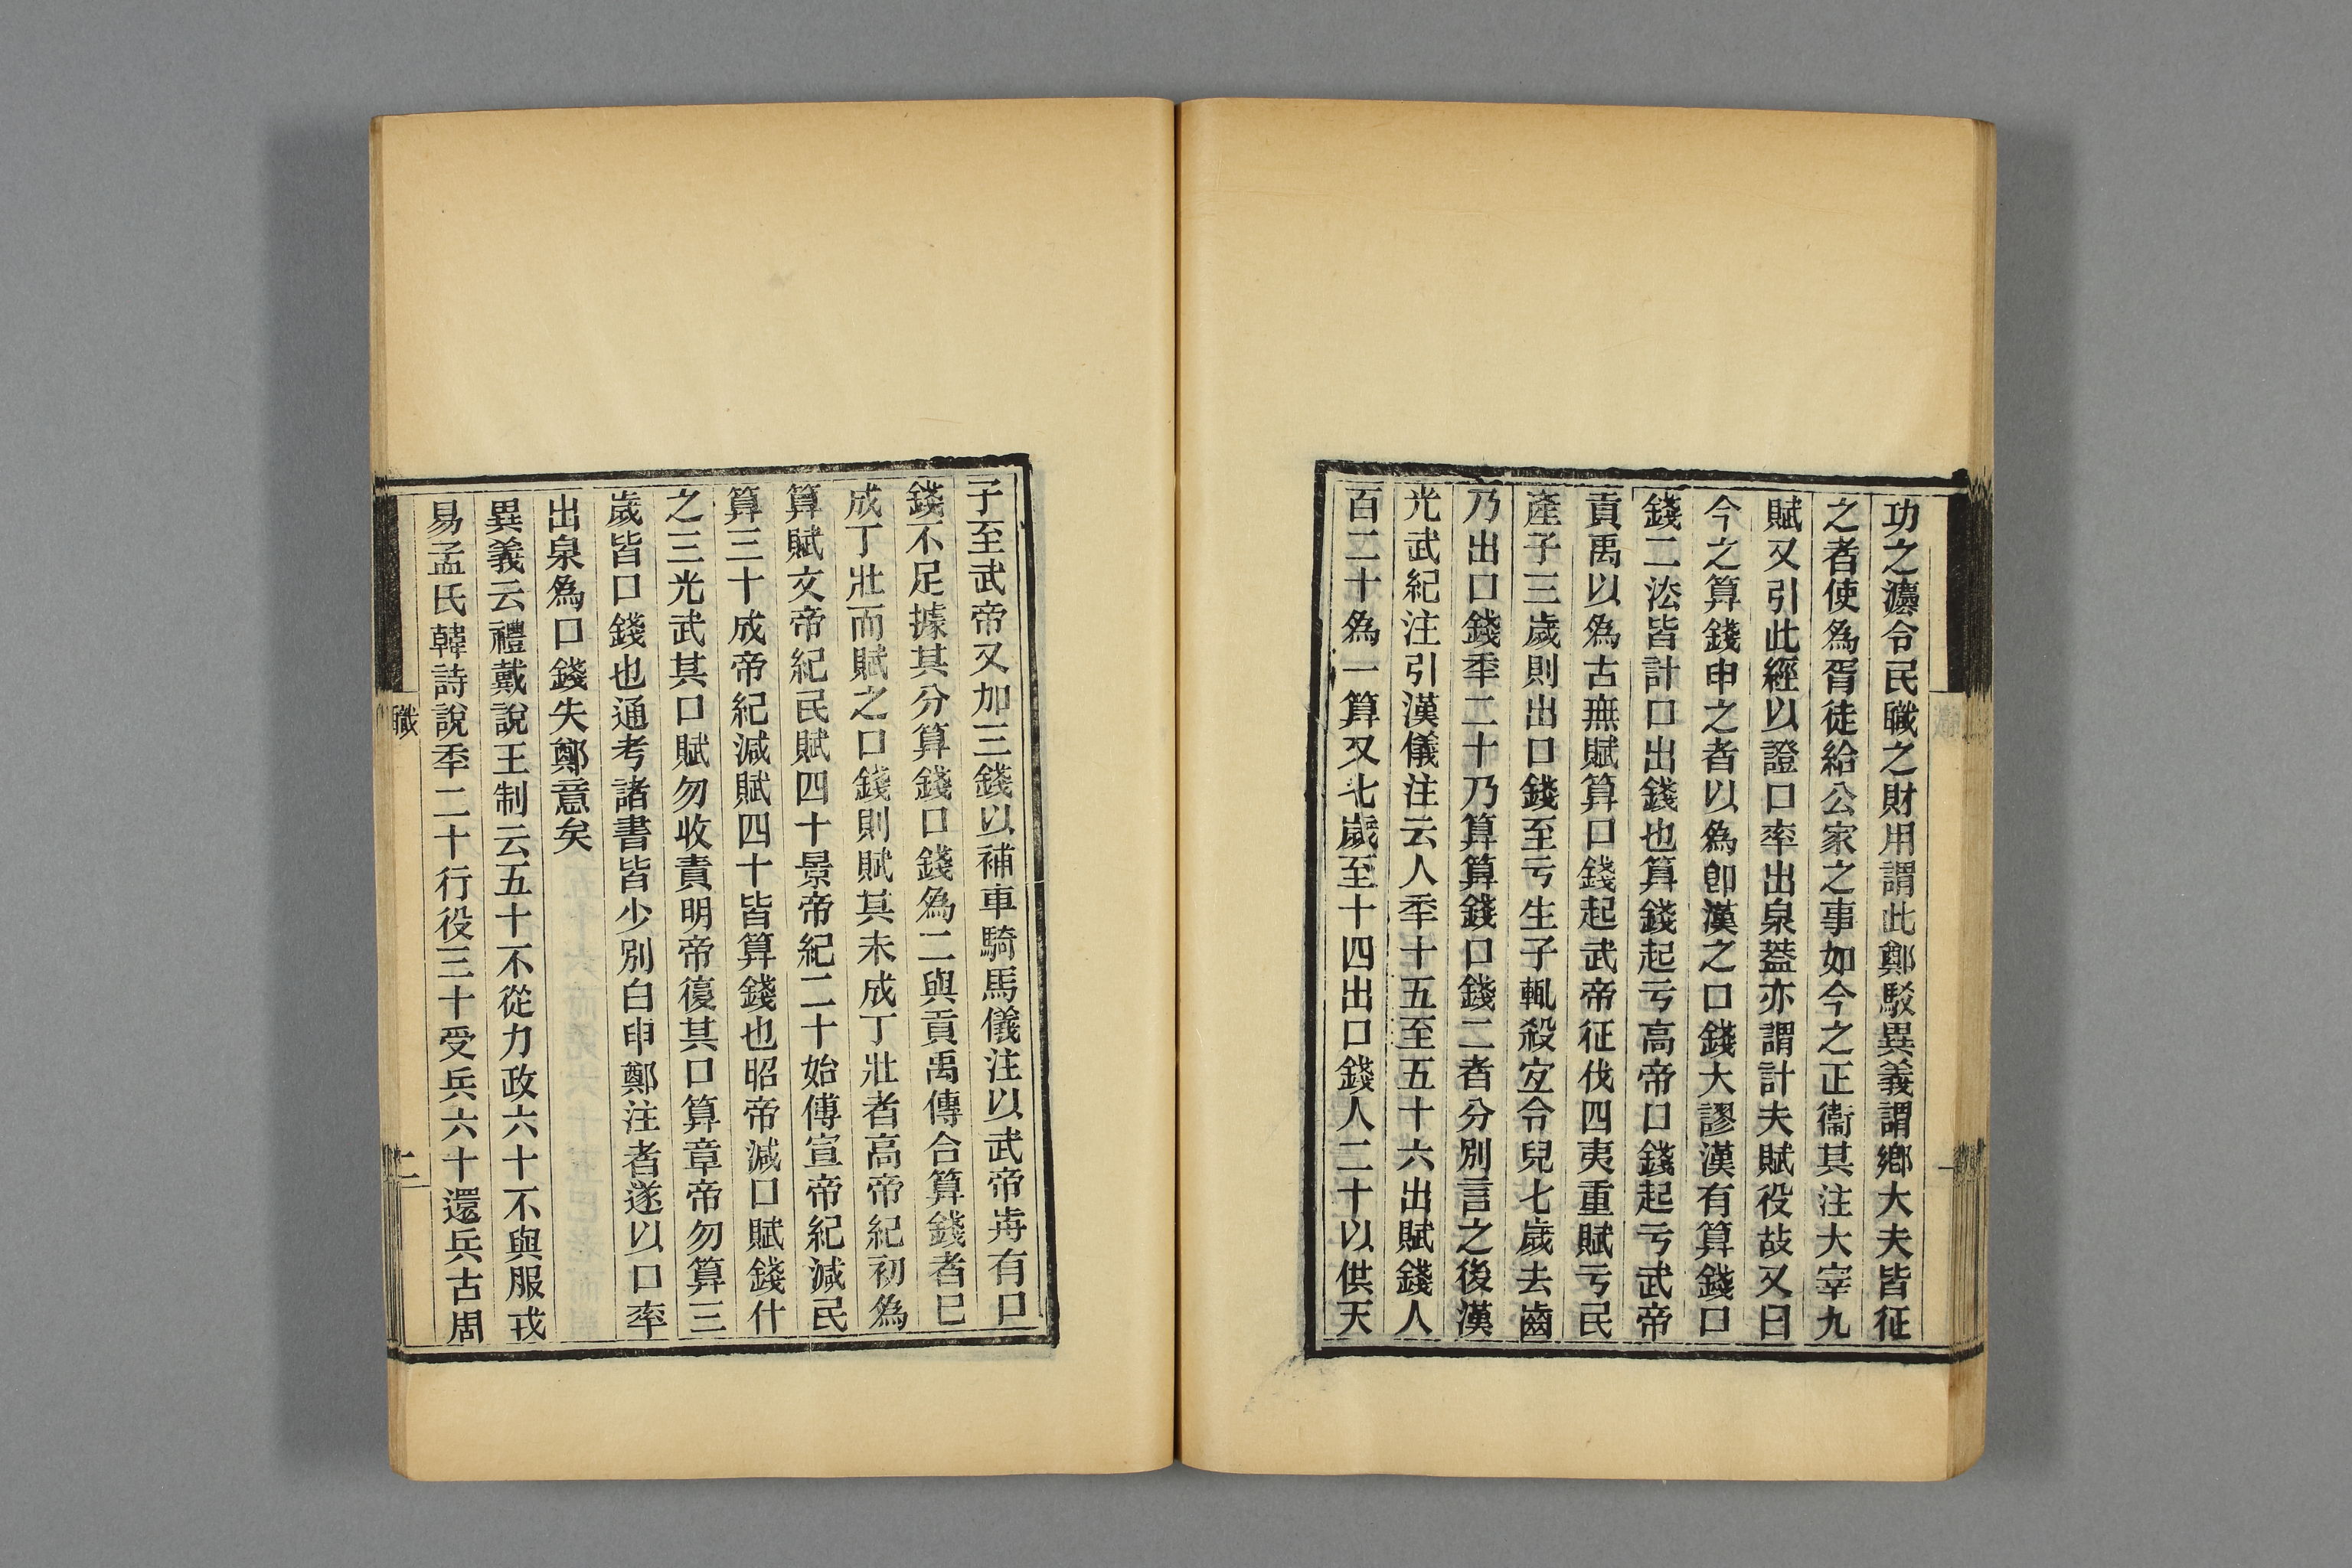 功之灋令民職之財用謂此鄭駁異義謂鄕大夫皆征
之者使為胥徒給公家之事如今之正衞其注大宰九
賦又引此經以證口率出泉葢亦謂計夫賦役故又曰
今之算錢申之者以為卽漢之口錢大謬漢有算錢口
錢二法皆計口出錢也算錢起亏高帝口錢起亏武帝
貢禹以為古無賦算口錢起武帝征伐四夷重賦亏民
產子三歲則出口錢至亏生子輒殺宐令兒七歲去齒
乃出口錢秊二十乃算算錢口錢二者分別言之後漢
光武紀注引漢儀注云人秊十五至五十六出賦錢人
百二十為一算又七歲至十四出口錢人二十以供天
子至武帝又加三錢以補車騎馬儀注以武帝歬有口
錢不足據其分算錢口錢為二與貢禹傳合算錢者已
成丁壯而賦之口錢則賦其未成丁壯者高帝紀初為
算賦文帝紀民賦四十景帝紀二十始傅宣帝紀減民
算三十成帝紀減賦四十皆算錢也昭帝減口賦錢什
之三光武其口賦勿收責明帝復其口算章帝勿算三
歲皆口錢也通考諸書皆少別白申鄭注者遂以口率
出泉為口錢失鄭意矣
異義云禮戴說王制云五十不從力政六十不與服戎
易孟氏韓詩說秊二十行役三十受兵六十還兵古周
職
二